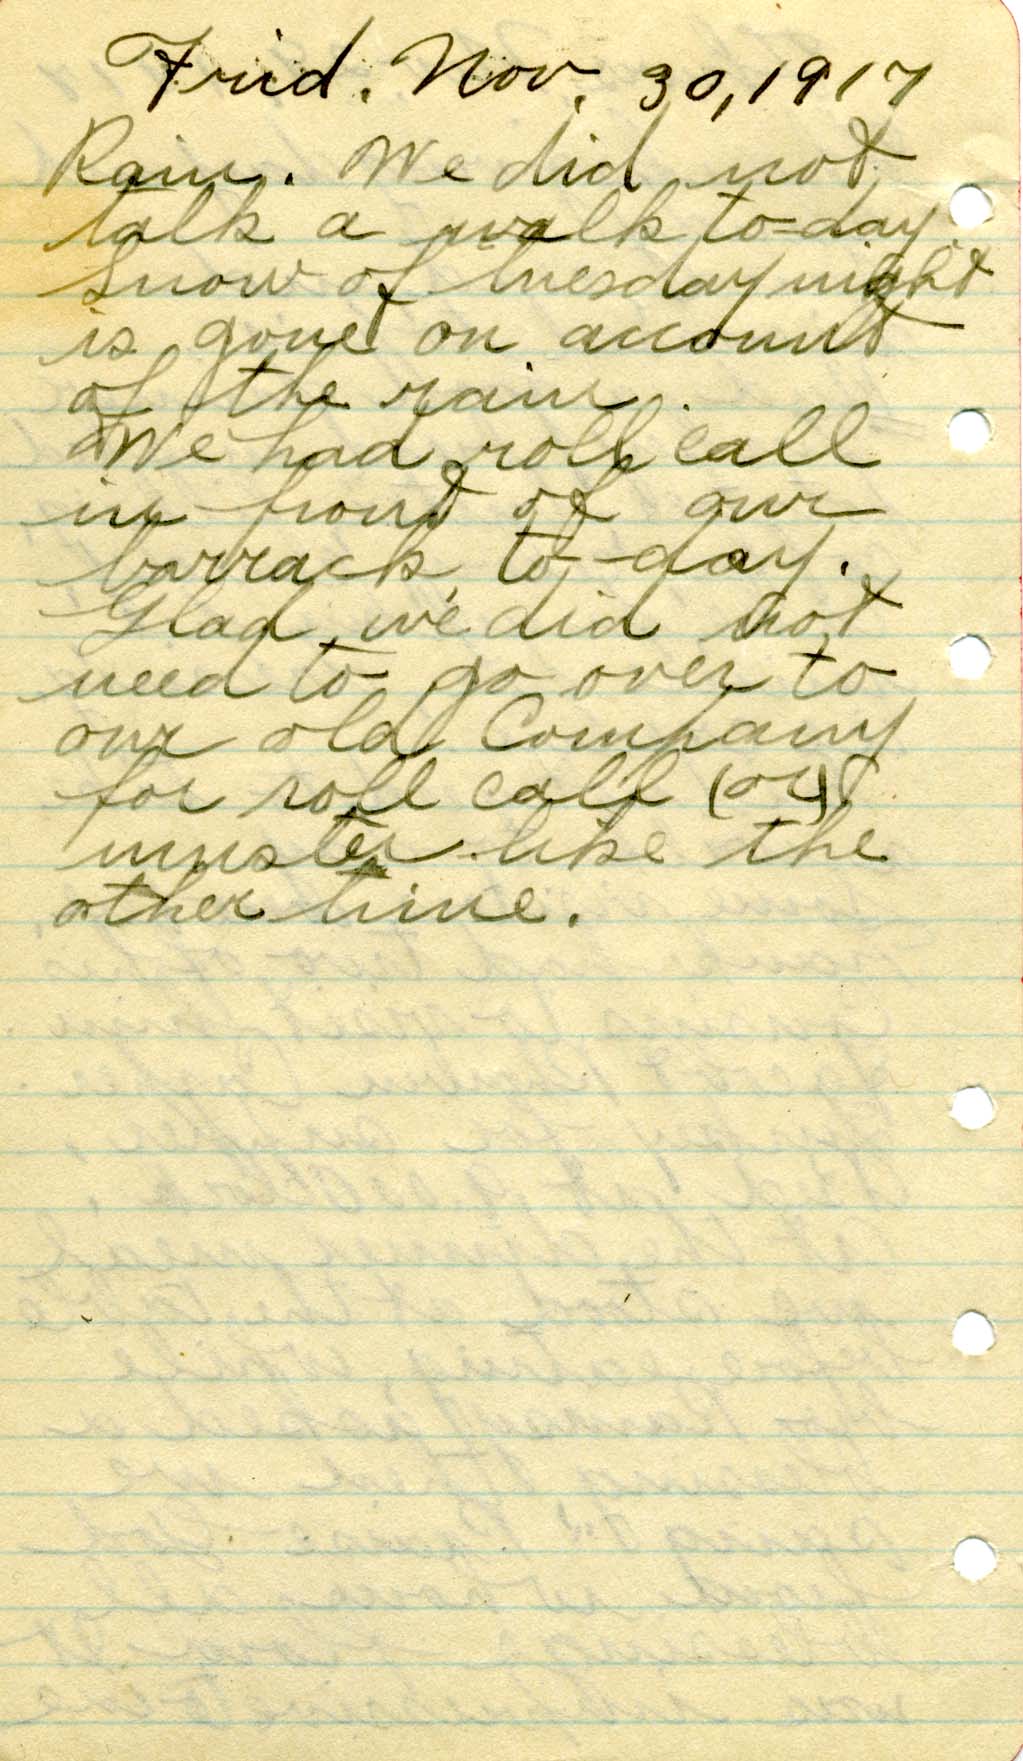 Frid. Nov. 30, 1917
Rain. We did not
talk a walk to-day.
Snow of Tuesday night
is gone on account
of the rain.
We had roll call
in front of our
barrack to-day.
Glad we did not
need to go over to
our old Company
for roll call (or)
muster like the
other time.